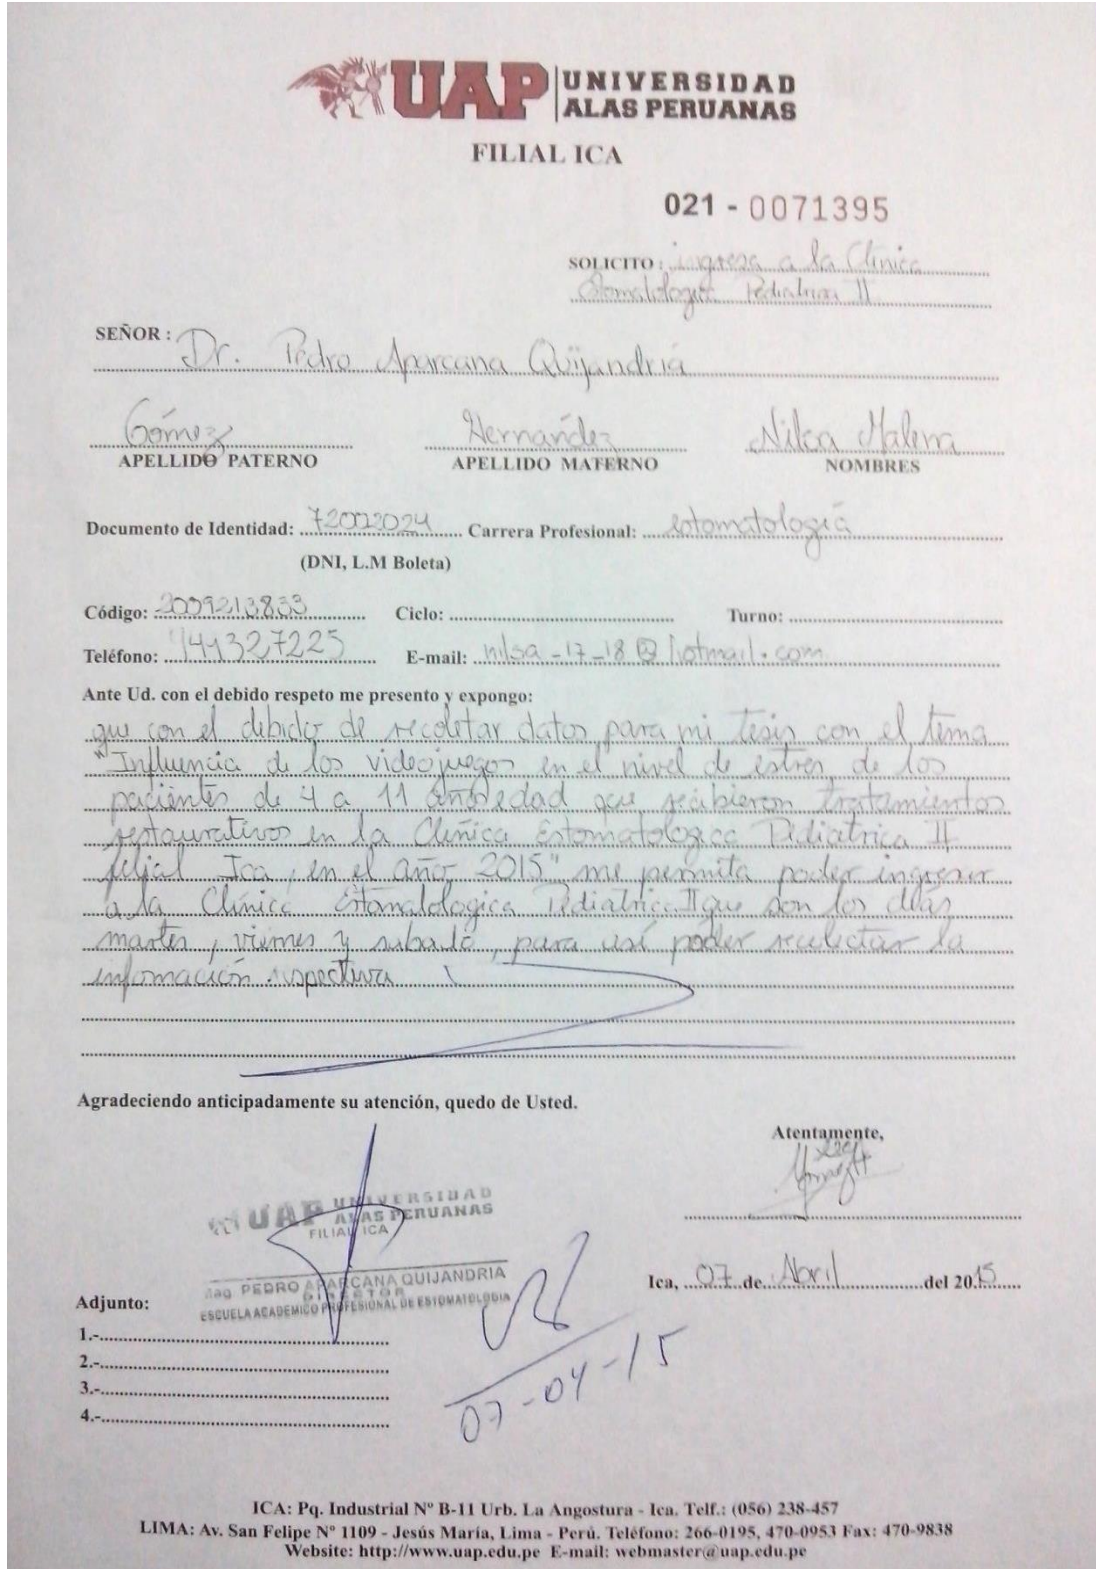 UAP UNIVERSIDAD
ALAS PERUANAS
FILIAL ICA
021 - 0071395
SOLICITO: ingreso a la Clínica
Estomatologica Pediatrica II
SEÑOR: Dr. Pedro Aparcana Quijandria
Gómez Hernández Nilsa Malena
APELLIDO PATERNO APELLIDO MATERNO NOMBRES
Documento de Identidad: 72002024 Carrera Profesional: estomatología
(DNI, L.M Boleta)
Código: 2009213833 Ciclo: Turno:
Teléfono: 941327225 E-mail: nilsa-17-18@hotmail.com
Ante Ud. con el debido respeto me presento y expongo:
que con el debido de recoletar datos para mi tesis con el tema
"Influencia de los videojuegos en el nivel de estres de los
pacientes de 4 a 11 años edad que recibieron tratamientos
restaurativos en la Clínica Estomatologica Pediatrica II
filial Ica, en el año 2015" me permita poder ingresar
a la Clínica Estomatologica Pediatrica II que son los días
martes, viernes y sabado, para así poder recolectar la
infomación respectiva
Agradeciendo anticipadamente su atención, quedo de Usted.
Atentamente,
UAP UNIVERSIDAD
ALAS PERUANAS
FILIAL ICA
Mag. PEDRO APARCANA QUIJANDRIA
DIRECTOR
ESCUELA ACADEMICO PROFESIONAL DE ESTOMATOLOGIA
Ica, 07 de Abril del 2015
Adjunto:
1.-
2.-
3.-
4.-
07-04-15
ICA: Pq. Industrial Nº B-11 Urb. La Angostura - Ica. Telf.: (056) 238-457
LIMA: Av. San Felipe Nº 1109 - Jesús María, Lima - Perú. Teléfono: 266-0195, 470-0953 Fax: 470-9838
Website: http://www.uap.edu.pe E-mail: webmaster@uap.edu.pe